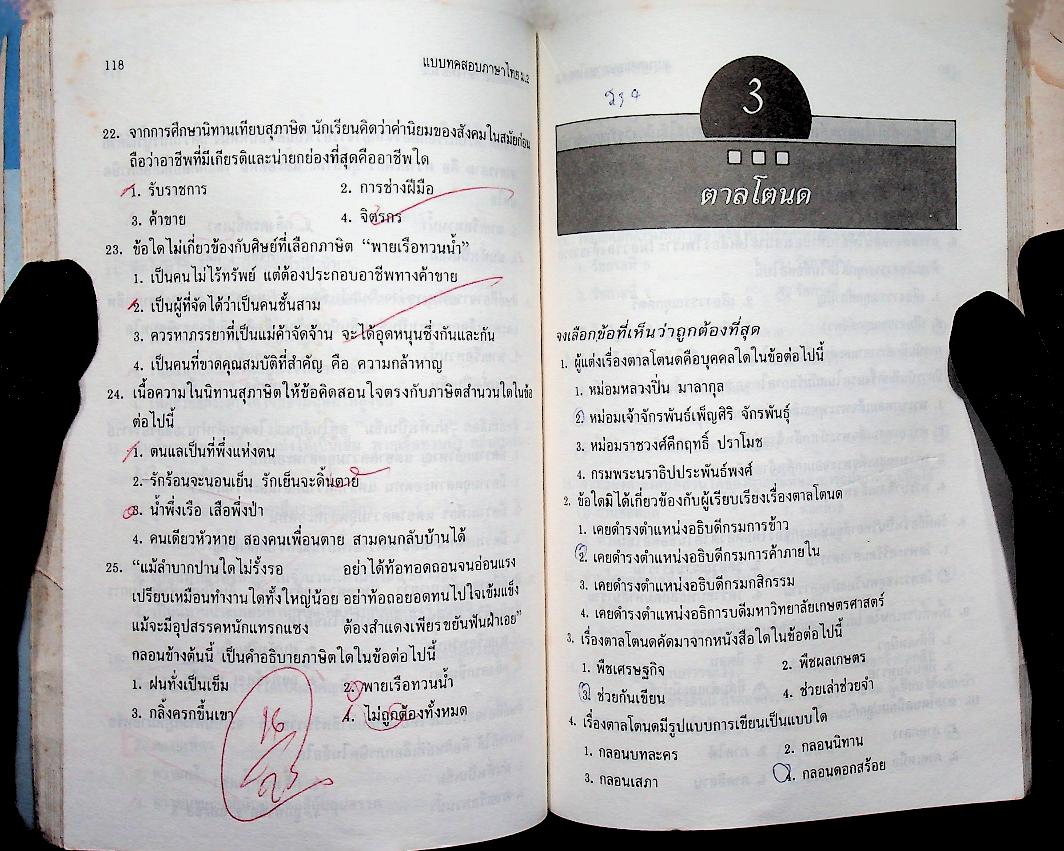 118
แบบทดสอบภาษาไทย ม.2
22. จากการศึกษานิทานเทียบสุภาษิต นักเรียนคิดว่าค่านิยมของสังคมในสมัยก่อน
ถือว่าอาชีพที่มีเกียรติและน่ายกย่องที่สุดคืออาชีพใด
1. รับราชการ 2. การช่างฝีมือ
3. ค้าขาย 4. จิตรกร
23. ข้อใดไม่เกี่ยวข้องกับศิษย์ที่เลือกภาษิต “พายเรือทวนน้ำ”
1. เป็นคนไม่ไร้ทรัพย์ แต่ต้องประกอบอาชีพทางค้าขาย
2. เป็นผู้ที่จัดได้ว่าเป็นคนชั้นสาม
3. ควรหาภรรยาที่เป็นแม่ค้าจัดจ้าน จะได้อุดหนุนซึ่งกันและกัน
4. เป็นคนที่ขาดคุณสมบัติที่สำคัญ คือ ความกล้าหาญ
24. เนื้อความในนิทานสุภาษิตให้ข้อคิดสอนใจตรงกับภาษิตสำนวนใดในข้อ
ต่อไปนี้
1. ตนแลเป็นที่พึ่งแห่งตน
2. รักร้อนจะนอนเย็น รักเย็นจะดิ้นตาย
3. น้ำพึ่งเรือ เสือพึ่งป่า
4. คนเดียวหัวหาย สองคนเพื่อนตาย สามคนกลับบ้านได้
25. “แม้ลำบากปานใดไม่รั้งรอ อย่าได้ท้อทอดถอนจนอ่อนแรง
เปรียบเหมือนทำงานใดทั้งใหญ่น้อย อย่าท้อถอยอดทนไปใจเข้มแข็ง
แม้จะมีอุปสรรคหนักแทรกแซง ต้องสำแดงเพียรขยันฟันฝ่าเอย”
กลอนข้างต้นนี้ เป็นคำอธิบายภาษิตใดในข้อต่อไปนี้
1. ฝนทั่งเป็นเข็ม 2. พายเรือทวนน้ำ
3. กลิ้งครกขึ้นเขา 4. ไม่ถูกต้องทั้งหมด
3
ตาลโตนด
จงเลือกข้อที่เห็นว่าถูกต้องที่สุด
1. ผู้แต่งเรื่องตาลโตนดคือบุคคลใดในข้อต่อไปนี้
1. หม่อมหลวงปิ่น มาลากุล
2. หม่อมเจ้าจักรพันธ์เพ็ญศิริ จักรพันธุ์
3. หม่อมราชวงศ์คึกฤทธิ์ ปราโมช
4. กรมพระนราธิปประพันธ์พงศ์
2. ข้อใดมิได้เกี่ยวข้องกับผู้เรียบเรียงเรื่องตาลโตนด
1. เคยดำรงตำแหน่งอธิบดีกรมการข้าว
2. เคยดำรงตำแหน่งอธิบดีกรมการค้าภายใน
3. เคยดำรงตำแหน่งอธิบดีกรมกสิกรรม
4. เคยดำรงตำแหน่งอธิการบดีมหาวิทยาลัยเกษตรศาสตร์
3. เรื่องตาลโตนดคัดมาจากหนังสือใดในข้อต่อไปนี้
1. พืชเศรษฐกิจ 2. พืชผลเกษตร
3. ช่วยกันเขียน 4. ช่วยเล่าช่วยจำ
4. เรื่องตาลโตนดมีรูปแบบการเขียนเป็นแบบใด
1. กลอนบทละคร 2. กลอนนิทาน
3. กลอนเสภา 4. กลอนดอกสร้อย